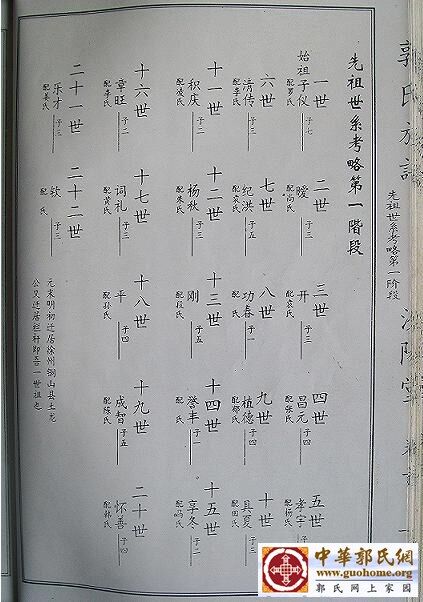 郭氏族譜
先祖世系考略第一阶段
汾陽堂
先祖世系考略第一階段
一世
始祖子仪
子七
配罗氏
二世
曖
子三
配高氏
三世
开
子三
配袁氏
四世
昌元
子四
配张氏
五世
孝宇
配杨氏
六世
清传
子三
配李氏
七世
纪洪
子五
八世
功春
子一
九世
植德
子四
十世
具夏
子三
配田氏
十一世
积庆
子二
配凌氏
十二世
杨秋
子三
配朱氏
十三世
刚
子五
配段氏
十四世
誉丰
子一
十五世
享冬
子二
配冯氏
十六世
章旺
子二
配李氏
十七世
词礼
子三
配黄氏
十八世
平
子四
配孙氏
十九世
成智
子五
配陈氏
二十世
怀善
子四
配韩氏
二十一世
乐才
子三
配姜氏
二十二世
钦
子三
配 氏
元末明初迁居徐州铜山县土龙
公又迁居拦杆即吾一世祖也
中華郭氏網
www.guohome.org
郭氏网上家园